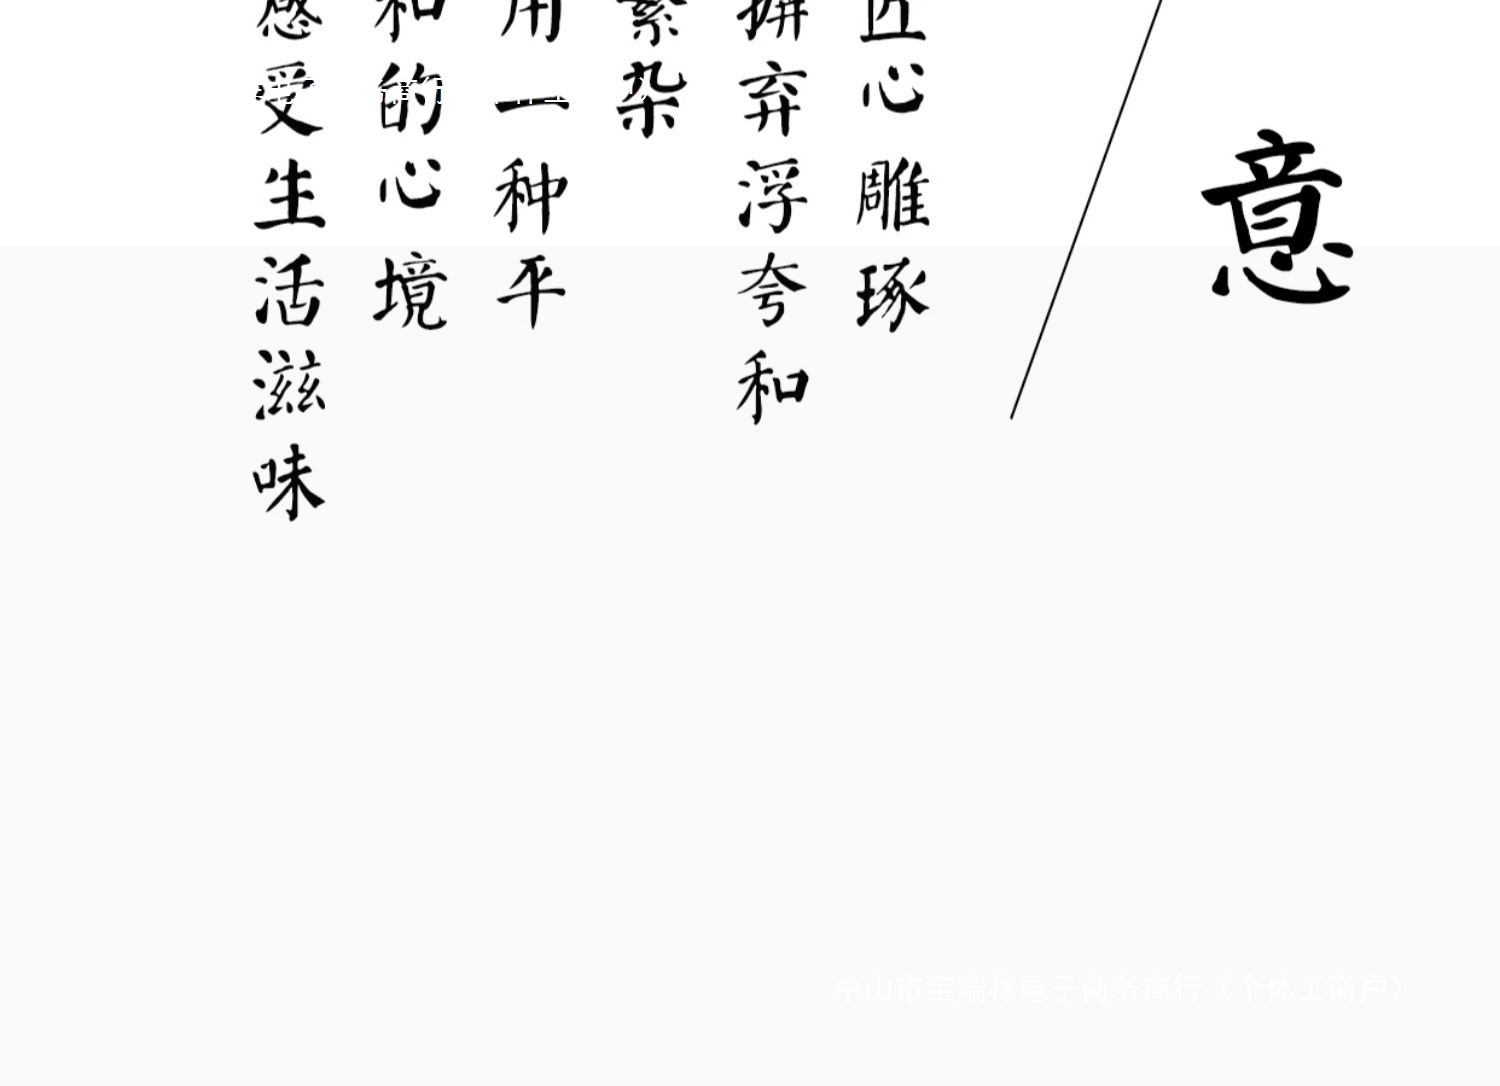 意
匠心雕琢
摒弃浮夸和
繁杂
用一种平
和的心境
感受生活滋味
中山市宝瑞祥电子商务商行（个体工商户）